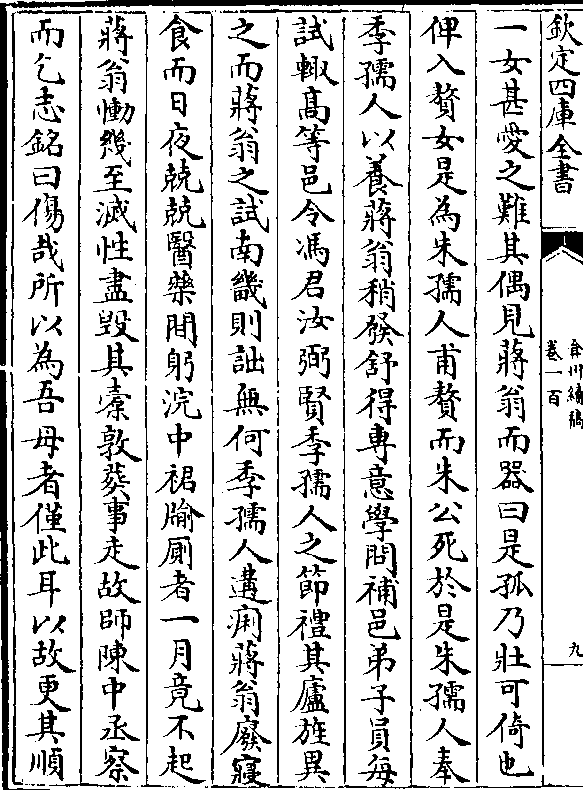 欽定四庫全書
弇州續稿
卷一百
九
一女甚愛之難其偶見蔣翁而器曰是孤乃壯可倚也
俾入贅女是為朱孺人甫贅而朱公死於是朱孺人奉
季孺人以養蔣翁稍發舒得專意學問補邑弟子員每
試輙髙等邑令馮君汝弼賢季孺人之節禮其廬旌異
之而蔣翁之試南畿則詘無何季孺人遘痢蔣翁廢寢
食而日夜兢兢醫藥間躬浣中裙牏厠者一月竟不起
蔣翁慟幾至滅性盡毀其橐敦葬事走故師陳中丞察
而乞志銘曰傷哉所以為吾母者僅此耳以故更其順